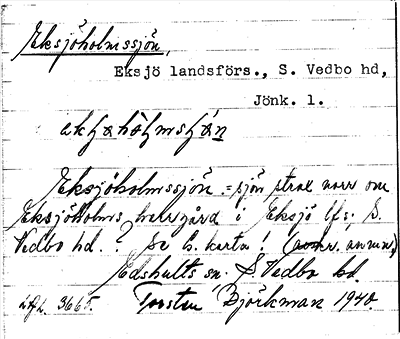 Eksjöholmssjön,
Eksjö landsförs., S. Vedbo hd,
Jönk. l.
Eksjöholmssjön = sjön strax norr om
Eksjöholms herrgård i Eksjö lfs. S.
Vedbo hd. ? Se b. karta! (anm.)
Edshults sn. S Vedbo hd.
3665. Torsten Björkman 1940.